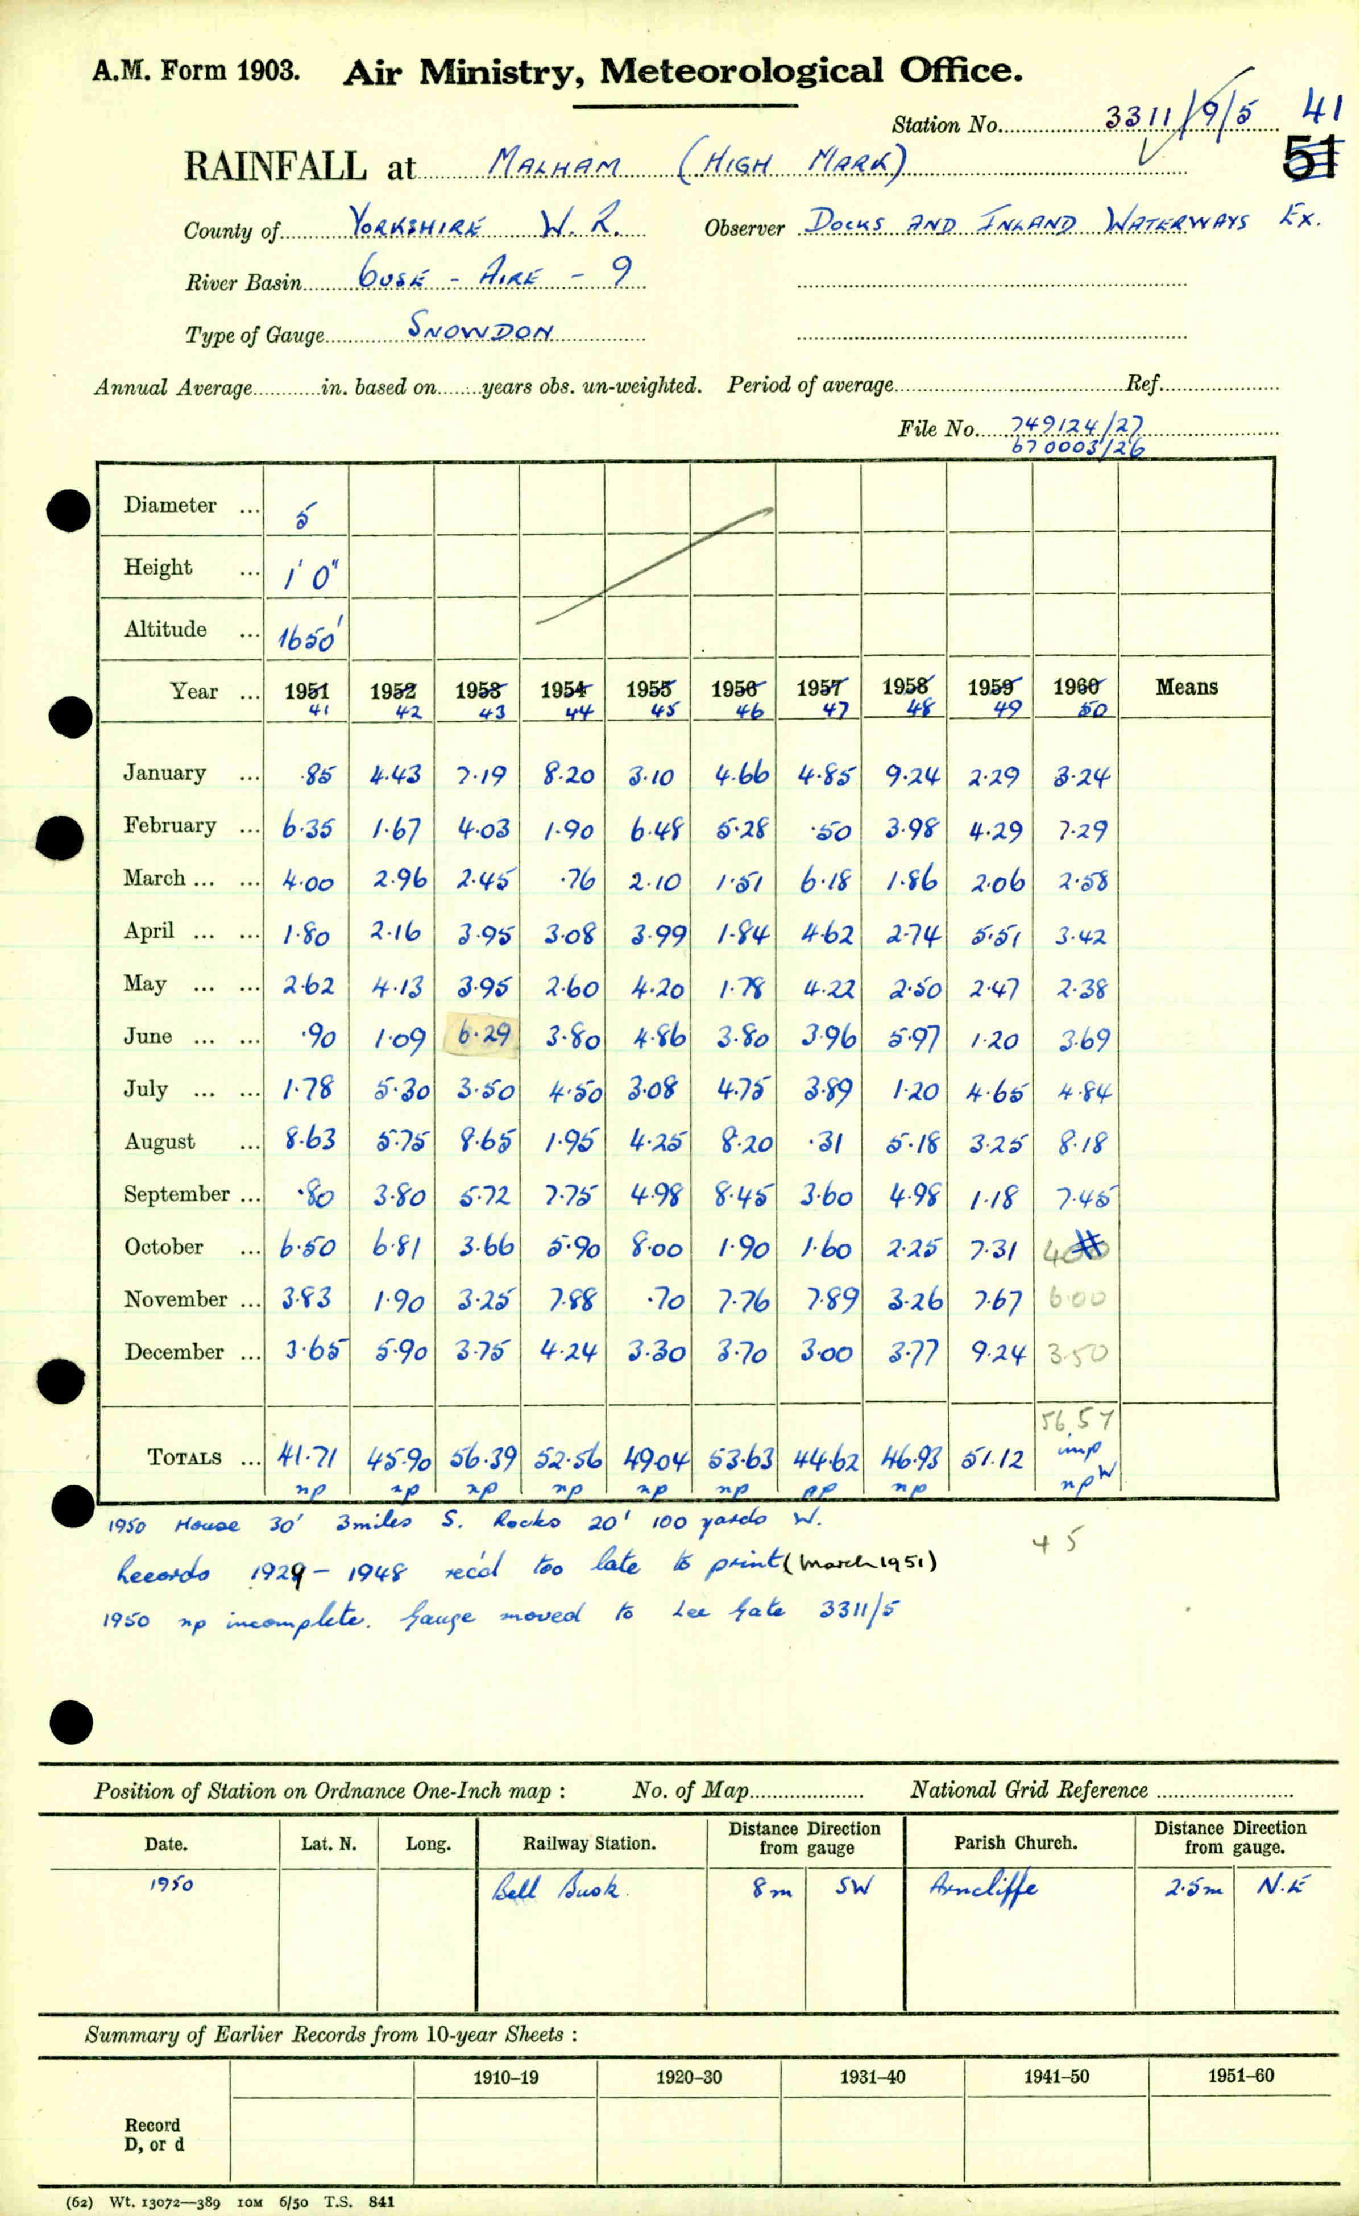 A.M. Form 1903. Air Ministry, Meteorological Office.
Station No. 3311/9/5 41
RAINFALL at MALHAM (HIGH MARK) 51
County of YORKSHIRE W. R. Observer DOCKS AND INLAND WATERWAYS EX.
River Basin OUSE - AIRE - 9
Type of Gauge SNOWDON
Annual Average in. based on years obs. un-weighted. Period of average Ref.
File No. 749124/27
670003/26
Diameter ... 5
Height ... 1' 0"
Altitude ... 1650'
Year ... 1951 1952 1953 1954 1955 1956 1957 1958 1959 1960 Means
41 42 43 44 45 46 47 48 49 50
January ... .85 4.43 7.19 8.20 3.10 4.66 4.85 9.24 2.29 3.24
February ... 6.35 1.67 4.03 1.90 6.48 5.28 .50 3.98 4.29 7.29
March ... ... 4.00 2.96 2.45 .76 2.10 1.51 6.18 1.86 2.06 2.58
April ... ... 1.80 2.16 3.95 3.08 3.99 1.84 4.62 2.74 5.51 3.42
May ... ... 2.62 4.13 3.95 2.60 4.20 1.78 4.22 2.50 2.47 2.38
June ... ... .90 1.09 6.29 3.80 4.86 3.80 3.96 5.97 1.20 3.69
July ... ... 1.78 5.30 3.50 4.50 3.08 4.75 3.89 1.20 4.65 4.84
August ... 8.63 5.75 8.65 1.95 4.25 8.20 .31 5.18 3.25 8.18
September ... .80 3.80 5.72 7.75 4.98 8.45 3.60 4.98 1.18 7.45
October ... 6.50 6.81 3.66 5.90 8.00 1.90 1.60 2.25 7.31 400
November ... 3.83 1.90 3.25 7.88 .70 7.76 7.89 3.26 7.67 6.00
December ... 3.65 5.90 3.75 4.24 3.30 3.70 3.00 3.77 9.24 3.50
56.57
TOTALS ... 41.71 45.90 56.39 52.56 49.04 53.63 44.62 46.93 51.12 imp
np np np np np np np np np W
1950 House 30' 3 miles S. Rocks 20' 100 yards W.
45
Records 1929 - 1948 rec'd too late to print (March 1951)
1950 np incomplete. Gauge moved to Lee Gate 3311/5
Position of Station on Ordnance One-Inch map : No. of Map National Grid Reference
Date. Lat. N. Long. Railway Station. Distance Direction from gauge Parish Church. Distance Direction from gauge.
1950 Bell Busk 8m SW Arncliffe 2.5m N.E
Summary of Earlier Records from 10-year Sheets :
1910–19 1920–30 1931–40 1941–50 1951–60
Record
D, or d
(62) Wt. 13072—389 10M 6/50 T.S. 841